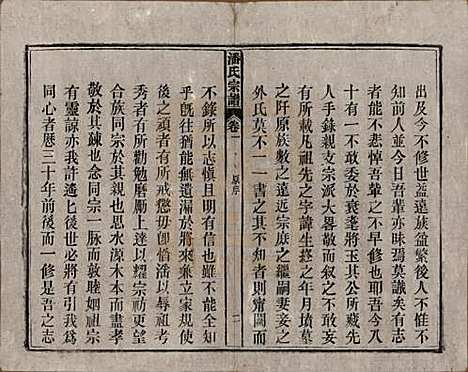 出及今不修世益遠族益繁後人不已
者能不悲悼吾輩之不早修也耶吾今
難並人今日吾輩亦昧瑀莫識矣有志
有一不敢委於衰耄將玉其公所藏先
人手錄支宗派大者親疎可敘者新之
有所載凡祖先之字諱生終之年月墳墓
之阡原族數之遠近宗庶之繼嗣妻妾之
外氏莫不一一書之其不知者則甯闕而
潘氏宗譜
卷一
原序
二
不錄所以志愼且明有信也雖不能如
乎旣往猶能無遺漏于將來兼立家規使
後之頑者有所戒懲毋卽惰潘以辱祖宗
秀者有所勸勉磨勵上達以耀宗祊更望
合族同宗於其親也思水源木本而盡孝
敬於其疎也念同宗一脉而敦睦姻祖宗
有靈諒亦我許遙遙後者必將有引我爲
同心者歷三十年前後而一修是吾之志